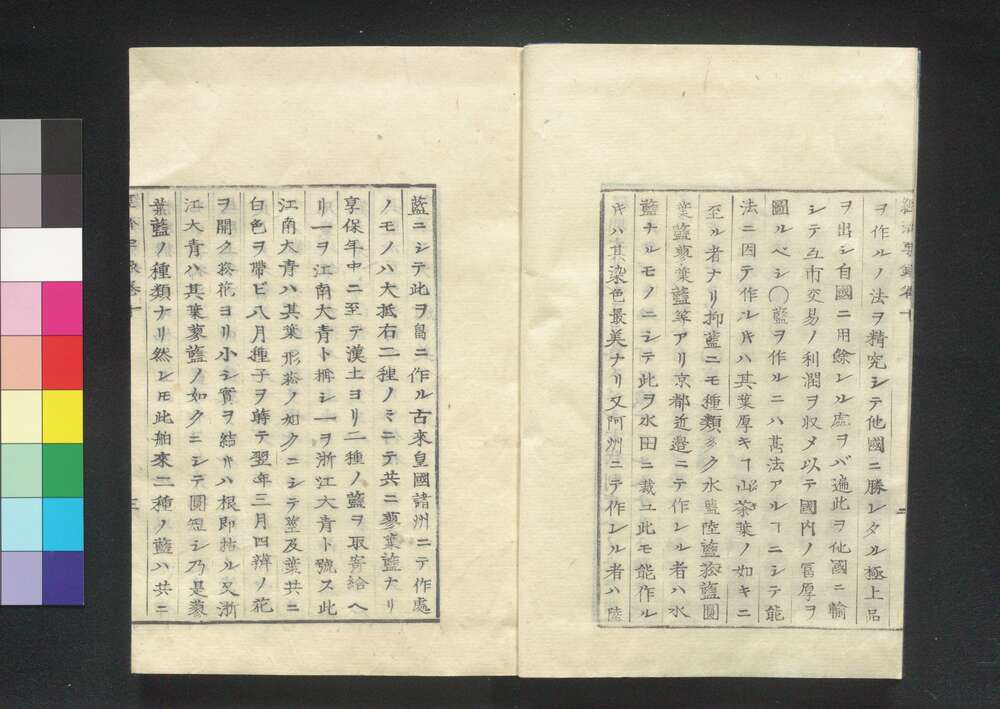 經濟要錄卷十
ヲ作ルノ法ヲ精究シテ他國ニ勝レタル極上品
ヲ出シ自國ニ用餘レル處ヲバ遍此ヲ他國ニ輸
シテ互市交易ノ利潤ヲ収メ以テ國内ノ冨厚ヲ
圖ルベシ〇藍ヲ作ルニハ甚法アルヿニシテ能
法ニ因テ作ル𪜈ハ其葉厚キヿ山茶葉ノ如キニ
至ル者ナリ抑藍ニモ種類多ク水藍陸藍菘藍圓
葉藍蓼葉藍等アリ京都近邉ニテ作レル者ハ水
藍ナルモノニシテ此ヲ水田ニ栽ユ此モ能作ル
𪜈ハ其染色最美ナリ又阿洲ニテ作レル者ハ陸
藍ニシテ此ヲ畠ニ作ル古來皇國諸州ニテ作處
ノモノハ大抵右二種ノミニテ共ニ蓼葉藍ナリ
享保年中ニ至テ漢土ヨリ二種ノ藍ヲ取寄給ヘ
リ一ヲ江南大青ト稱シ一ヲ浙江大青ト號ス此
江南大青ハ其葉形菘ノ如クニシテ莖及葉共ニ
白色ヲ帶ビ八月種子ヲ蒔テ翌年三月四辨ノ花
ヲ開ク菘花ヨリ小シ實ヲ結べハ根即枯ル又浙
江大青ハ其葉蓼藍ノ如クニシテ圓短シ乃是蓼
葉藍ノ種類ナリ然レ𪜈此舶來二種ノ藍ハ共ニ
三